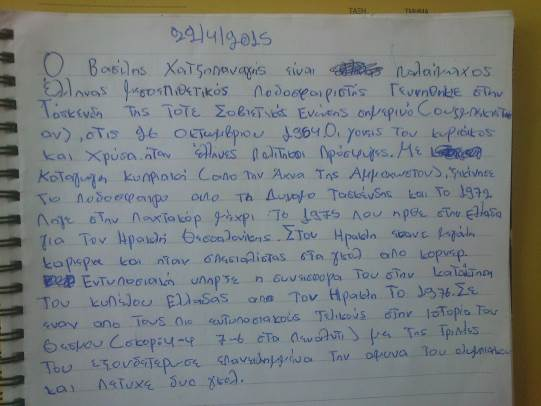 ΤΑΞΗ ΤΜΗΜΑ
22/4/2015
Ο Βασίλης Χατζηπαναγής είναι παλαίμαχος
Έλληνας μεσοεπιθετικός ποδοσφαιριστής Γεννηθηκε στην
Τάσκενδη της τοτε Σοβιετικής Ενώσης σημερινό (ουζμπεκιστ
αν), στις 26 Οκτωμβριου 1954 Ο, γονεις του κυριάκος
και Χρύσα ηταν έλληνες πολιτικοι πρόσφυγες. Με
καταγωγη κυπριακη (απο την Άχνα της Αμμοχωστου), ξεκίνησε
το ποδοσφαιρο απο τη Διναμο Τασκένδης και το 1972
πηγε στην Παχτακόρ μέχρι το 1975 που ηρθε στην Ελλαδα
για τον Ηρακλή Θεσσαλονίκης. Στον Ηρακλη εκανε μεγαλη
καριερα και ηταν σπεσιαλιστας στα γκολ απο κορνερ.
Εντυπωσιακη υπηρξε η συνεισφορα του στην κατακτηση
του κυπέλου Ελλαδας απο τον Ηρακλη το 1976. Σε
εναν απο τους πιο εντυπωσιακους τελικους στην ιστορια του
θεσμου (σκορ 4-4 7-6 στα πεναλντι) με της τριπλες
του εξουδετερωσε επανειλημμένα την αμυνα του ολυμπιακου
και πετυχε δυο γκολ.